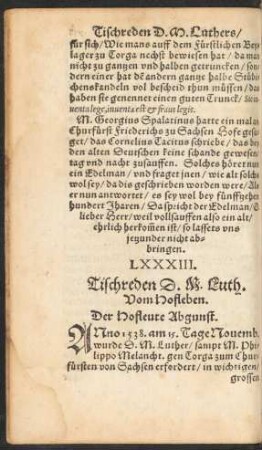 Tischreden D. M. Luthers/
für sich/ Wie mans auff dem Fürstlichen Bey
lager zu Torga nechst bewiesen hat / da man
nicht zu gantzen vnd halben getruncken / son
dern einer hat dē andern gantze halbe Stüb
chenskandeln vol bescheid thun müssen / das
haben sie genennet einen guten Trunck / Sic
inuenta lege, inuenta est & fraus legis.
M. Georgius Spalatinus hatte ein mal an
Churfürst Friederichs zu Sachsen Hofe gesa
get / das Cornelius Tacitus schriebe / das bey
den alten Deutschen keine schande gewesen
tag vnd nacht zusauffen. Solches höret nun
ein Edelman / vnd fraget jnen / wie alt solchs
wol sey / da dis geschrieben worden were / Als
er nun antwortet / es sey wol bey fünffzehen
hundert Jharen / Da spricht der Edelman / O
lieber Herr / weil vollsauffen also ein alt /
ehrlich herkom̄en ist / so lassets vns
jetzunder nicht ab-
bringen.
LXXXIII.
Tischreden D. M. Luth.
Vom Hofleben.
Der Hofleute Abgunst.
ANno 1538. am 15. Tage Nouemb.
wurde D. M. Luther / sampt M. Phi
lippo Melancht. gen Torga zum Chur
fürsten von Sachsen erfordert / in wichtigen /
grossen